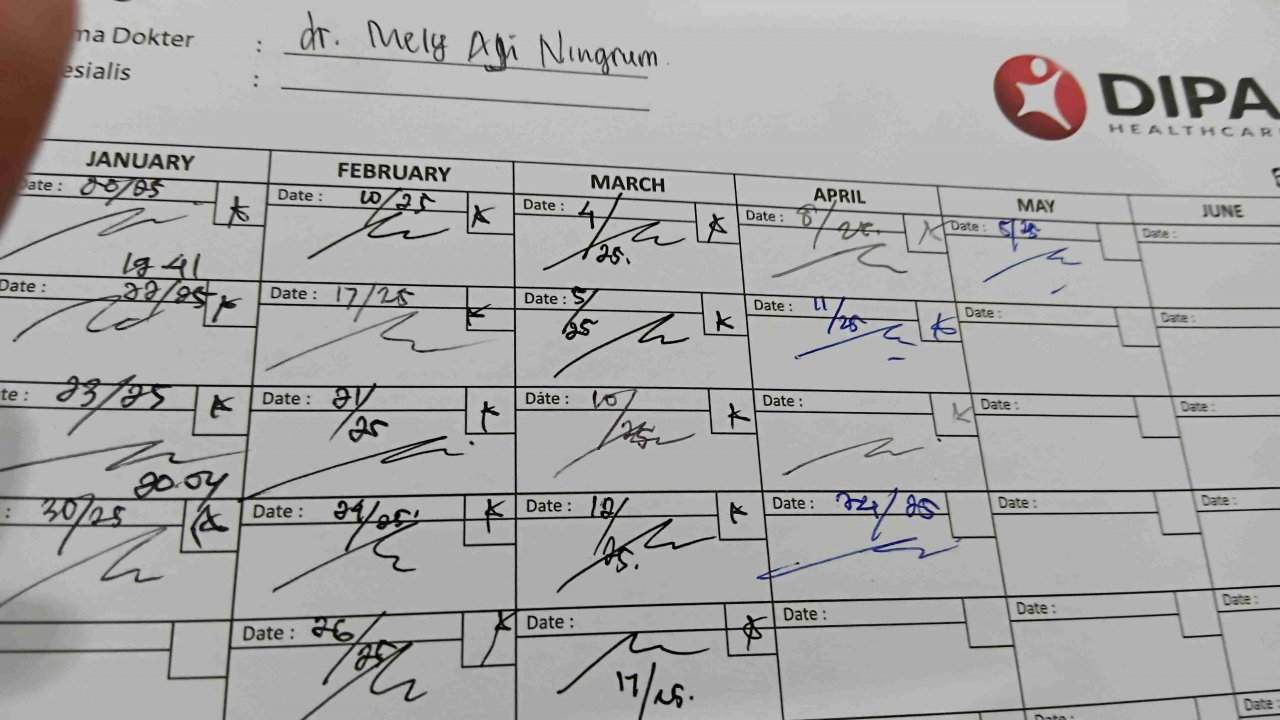 ma Dokter : dr. Mely Agi Ningrum
esialis :
DIPA
HEALTHCAR
JANUARY FEBRUARY MARCH APRIL MAY JUNE
ate : 20/25 Date : 10/25 Date : 4/25. Date : 8/25. Date : 5/25 Date :
19.41
Date : 22/25 Date : 17/25 Date : 5/25 Date : 11/25 Date : Date :
te : 23/25 Date : 21/25 Date : 10/25 Date : Date : Date :
20.04
: 30/25 Date : 24/25 Date : 12/25. Date : 24/25 Date : Date :
Date : 26/25 Date : 17/25. Date : Date : Date :
Date : Date :